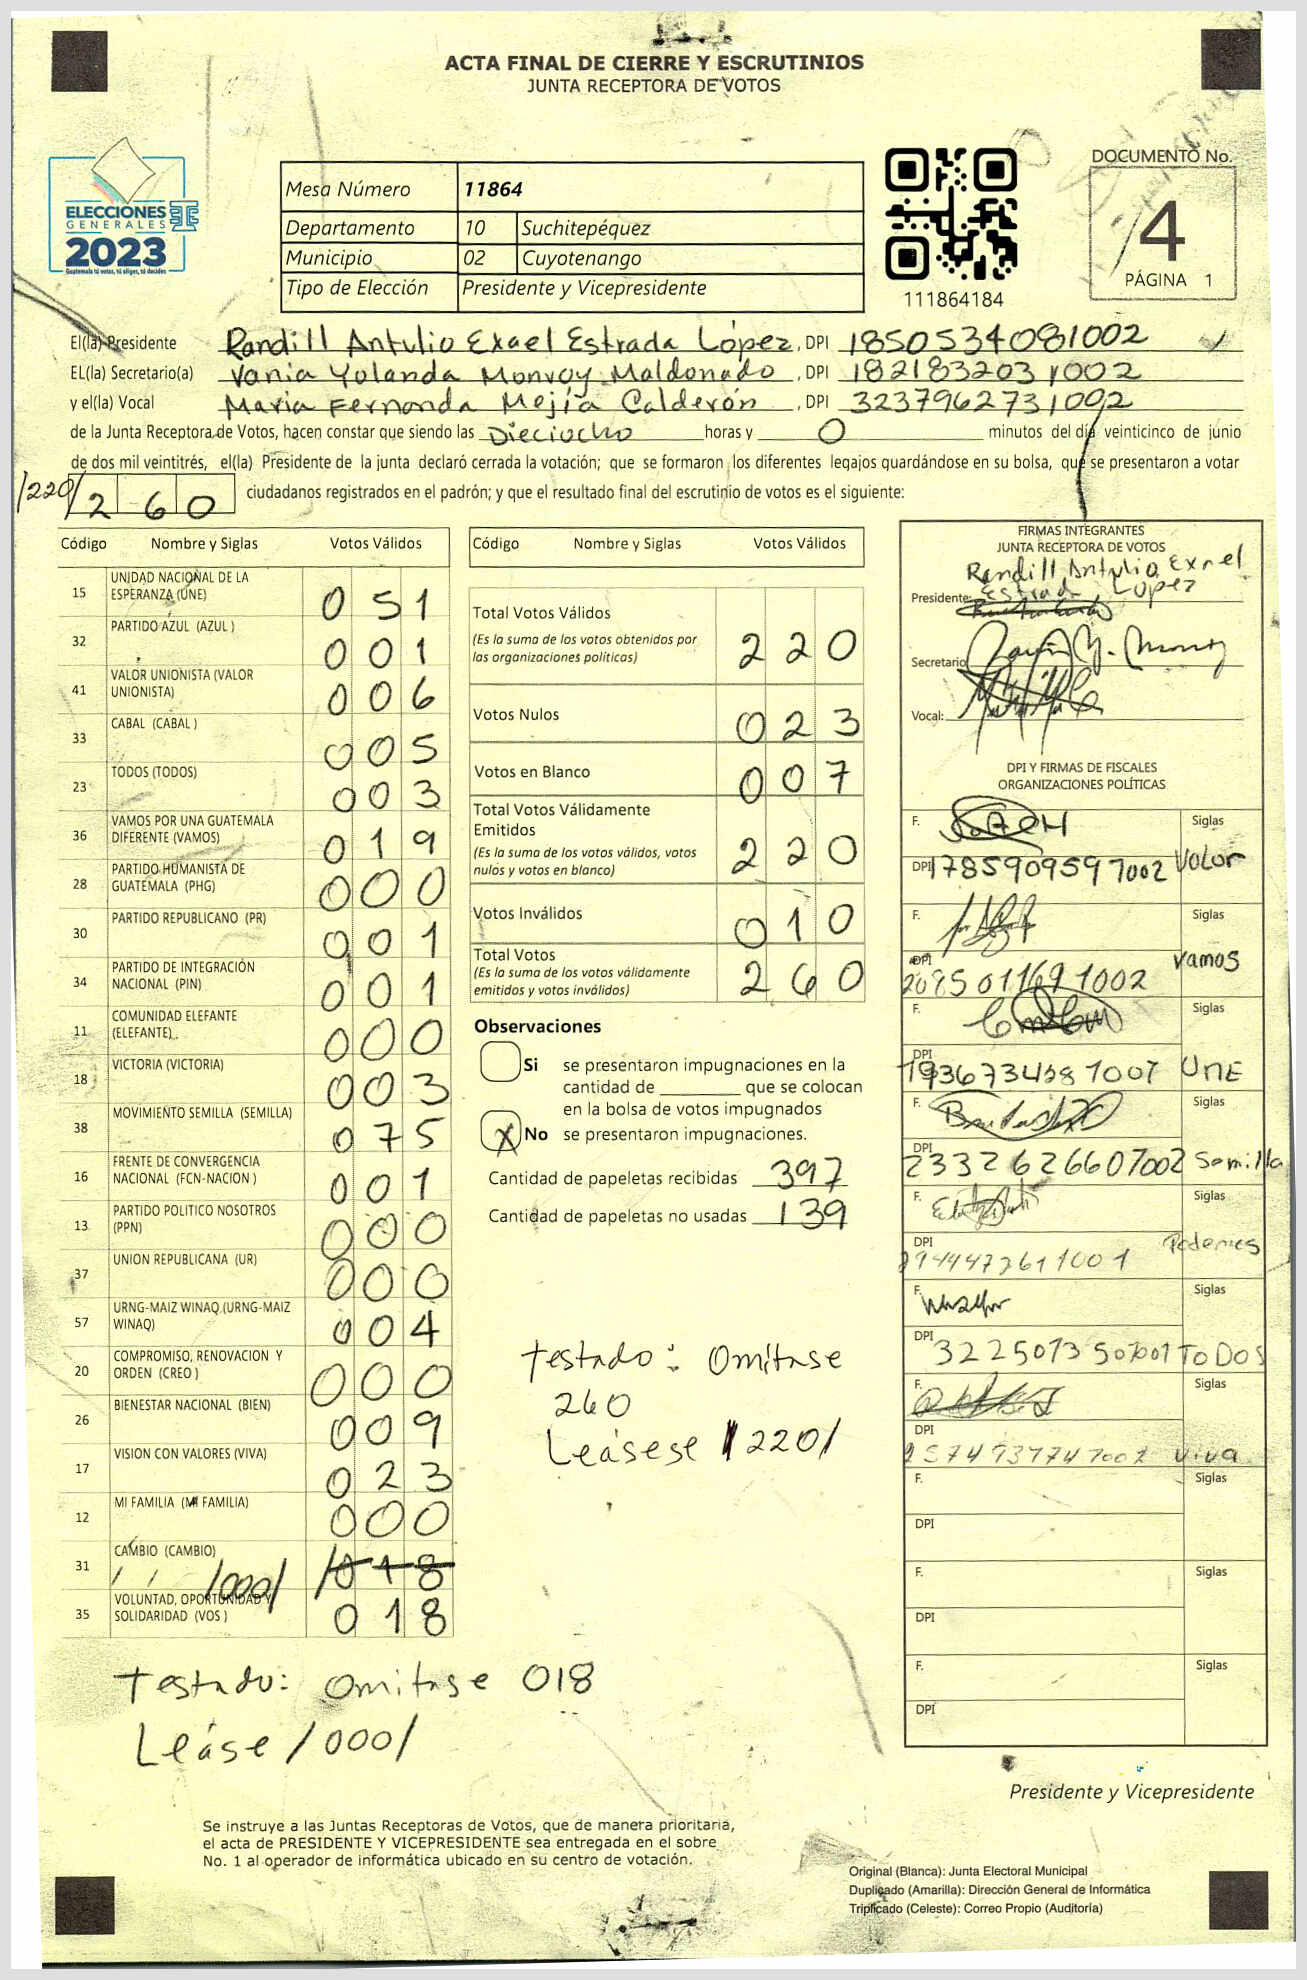 ACTA FINAL DE CIERRE Y ESCRUTINIOS
JUNTA RECEPTORA DE VOTOS
ELECCIONES
GENERALES
2023
Guatemala tú votas, tú eliges, tú decides
Mesa Número 11864
Departamento 10 Suchitepéquez
Municipio 02 Cuyotenango
Tipo de Elección Presidente y Vicepresidente
111864184
DOCUMENTO No.
4
PÁGINA 1
El(la) Presidente Randill Antulio Exael Estrada López, DPI 1850534081002
EL(la) Secretario(a) Vania Yolanda Monroy Maldonado, DPI 1821832031002
y el(la) Vocal Maria Fernanda Mejía Calderón, DPI 3237962731002
de la Junta Receptora de Votos, hacen constar que siendo las Dieciocho horas y 0 minutos del día veinticinco de junio
de dos mil veintitrés, el(la) Presidente de la junta declaró cerrada la votación; que se formaron los diferentes legajos guardándose en su bolsa, que se presentaron a votar
/220/ 260 ciudadanos registrados en el padrón; y que el resultado final del escrutinio de votos es el siguiente:
Código Nombre y Siglas Votos Válidos
15 UNIDAD NACIONAL DE LA ESPERANZA (UNE) 051
32 PARTIDO AZUL (AZUL ) 001
41 VALOR UNIONISTA (VALOR UNIONISTA) 006
33 CABAL (CABAL ) 005
23 TODOS (TODOS) 003
36 VAMOS POR UNA GUATEMALA DIFERENTE (VAMOS) 019
28 PARTIDO HUMANISTA DE GUATEMALA (PHG) 000
30 PARTIDO REPUBLICANO (PR) 001
34 PARTIDO DE INTEGRACIÓN NACIONAL (PIN) 001
11 COMUNIDAD ELEFANTE (ELEFANTE) 000
18 VICTORIA (VICTORIA) 003
38 MOVIMIENTO SEMILLA (SEMILLA) 075
16 FRENTE DE CONVERGENCIA NACIONAL (FCN-NACION ) 001
13 PARTIDO POLITICO NOSOTROS (PPN) 000
37 UNION REPUBLICANA (UR) 000
57 URNG-MAIZ WINAQ (URNG-MAIZ WINAQ) 004
20 COMPROMISO, RENOVACION Y ORDEN (CREO ) 000
26 BIENESTAR NACIONAL (BIEN) 009
17 VISION CON VALORES (VIVA) 023
12 MI FAMILIA (MI FAMILIA) 000
31 CAMBIO (CAMBIO) /000/ /018
35 VOLUNTAD, OPORTUNIDAD Y SOLIDARIDAD (VOS ) 018
Testado: Omitase 018
Leáse /000/
Código Nombre y Siglas Votos Válidos
Total Votos Válidos
(Es la suma de los votos obtenidos por las organizaciones políticas) 220
Votos Nulos 023
Votos en Blanco 007
Total Votos Válidamente Emitidos
(Es la suma de los votos válidos, votos nulos y votos en blanco) 220
Votos Inválidos 010
Total Votos
(Es la suma de los votos válidamente emitidos y votos inválidos) 260
Observaciones
Si se presentaron impugnaciones en la
cantidad de ________ que se colocan
en la bolsa de votos impugnados
X No se presentaron impugnaciones.
Cantidad de papeletas recibidas 397
Cantidad de papeletas no usadas 139
Testado: Omitase
260
Leásese /220/
FIRMAS INTEGRANTES
JUNTA RECEPTORA DE VOTOS
Presidente: Randill Antulio Exael
Estrada López
Secretario
Vocal:
DPI Y FIRMAS DE FISCALES
ORGANIZACIONES POLÍTICAS
F. Siglas
DPI 1785909597002 Valor
F. Siglas
DPI Vamos
F. Siglas
DPI UNE
F. Siglas
DPI 2332626607002 Semilla
F. Siglas
DPI Podemos
F. Siglas
DPI TODOS
F. Siglas
DPI Viva
F. Siglas
DPI
F. Siglas
DPI
F. Siglas
DPI
Presidente y Vicepresidente
Se instruye a las Juntas Receptoras de Votos, que de manera prioritaria,
el acta de PRESIDENTE Y VICEPRESIDENTE sea entregada en el sobre
No. 1 al operador de informática ubicado en su centro de votación.
Original (Blanca): Junta Electoral Municipal
Duplicado (Amarilla): Dirección General de Informática
Triplicado (Celeste): Correo Propio (Auditoría)